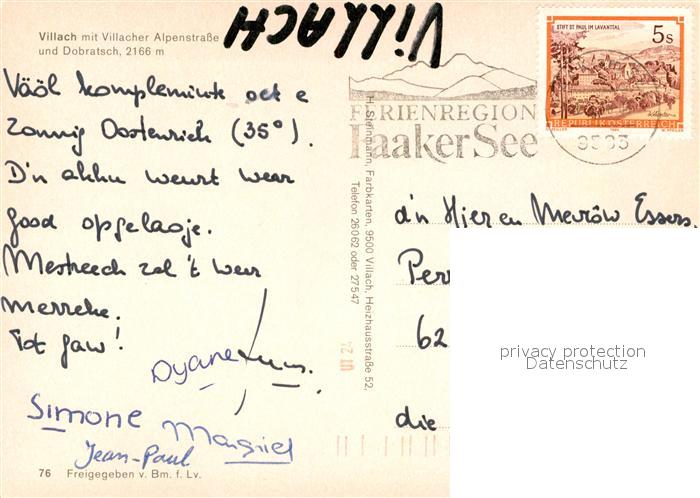 Villach mit Villacher Alpenstraße
und Dobratsch, 2166 m
VillACH
STIFT ST. PAUL IM LAVANTTAL
5s
REPUBLIK ÖSTERREICH
FERIENREGION
FaakerSee
9583
Vööl kompleminte oet e
zonnig Oostenriek (35°).
D'n akku weurt weer
good opgelaoje.
Mestreech zal 't weer
merreke.
Tot gaw!
Dyane
Simone
Margriet
Jean-Paul
d'n Hier en Mevrow Essers.
Per
62
die
H. Steinmann, Farbkarten, 9500 Villach, Heizhausstraße 52,
Telefon 26062 oder 27547
privacy protection
Datenschutz
76 Freigegeben v. Bm. f. Lv.